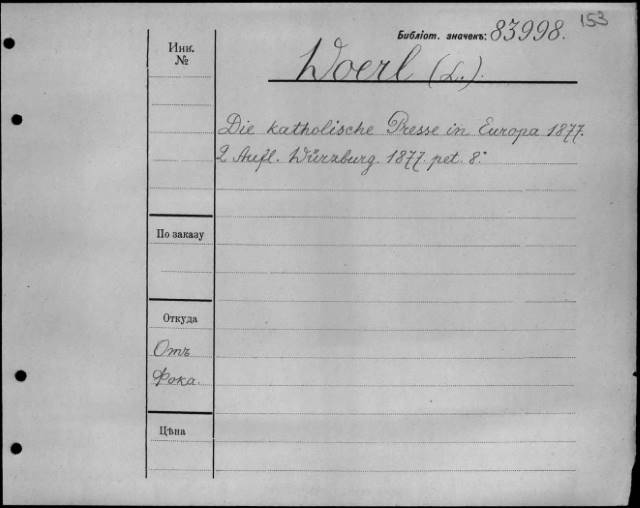 153
Библіот. значекъ: 83998.
Инв. №
Woerl (L.).
Die katholische Presse in Europa 1877.
2 Aufl. Würzburg. 1877. pet. 8.°
По заказу
Откуда
Отъ
Фока.
Цѣна